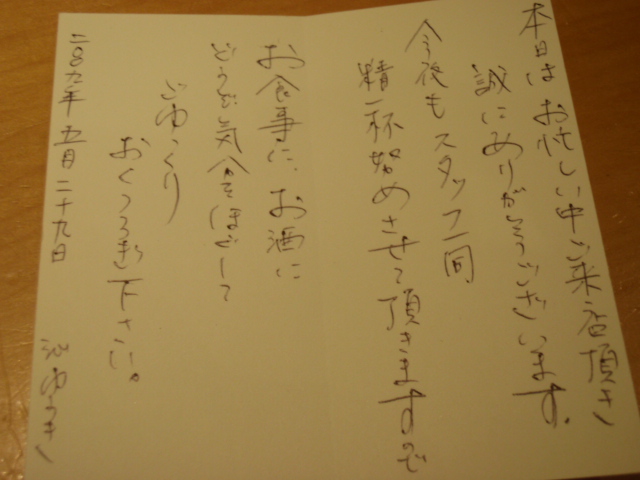 本日はお忙しい中ご来店頂き
誠にありがとうございます。
今後もスタッフ一同
精一杯努めさせて頂きますので
お食事に、お酒に
どうぞ気分をほぐして
ごゆっくり
おくつろぎ下さい。
二〇〇九年 五月二十九日